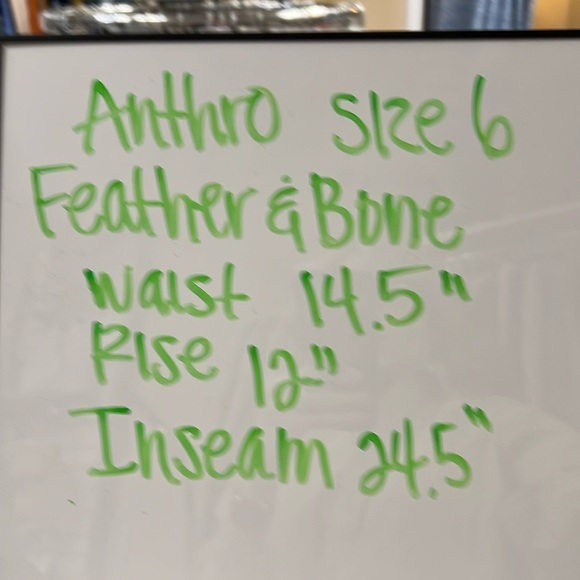 Anthro size 6
Feather & Bone
Waist 14.5"
Rise 12"
Inseam 24.5"